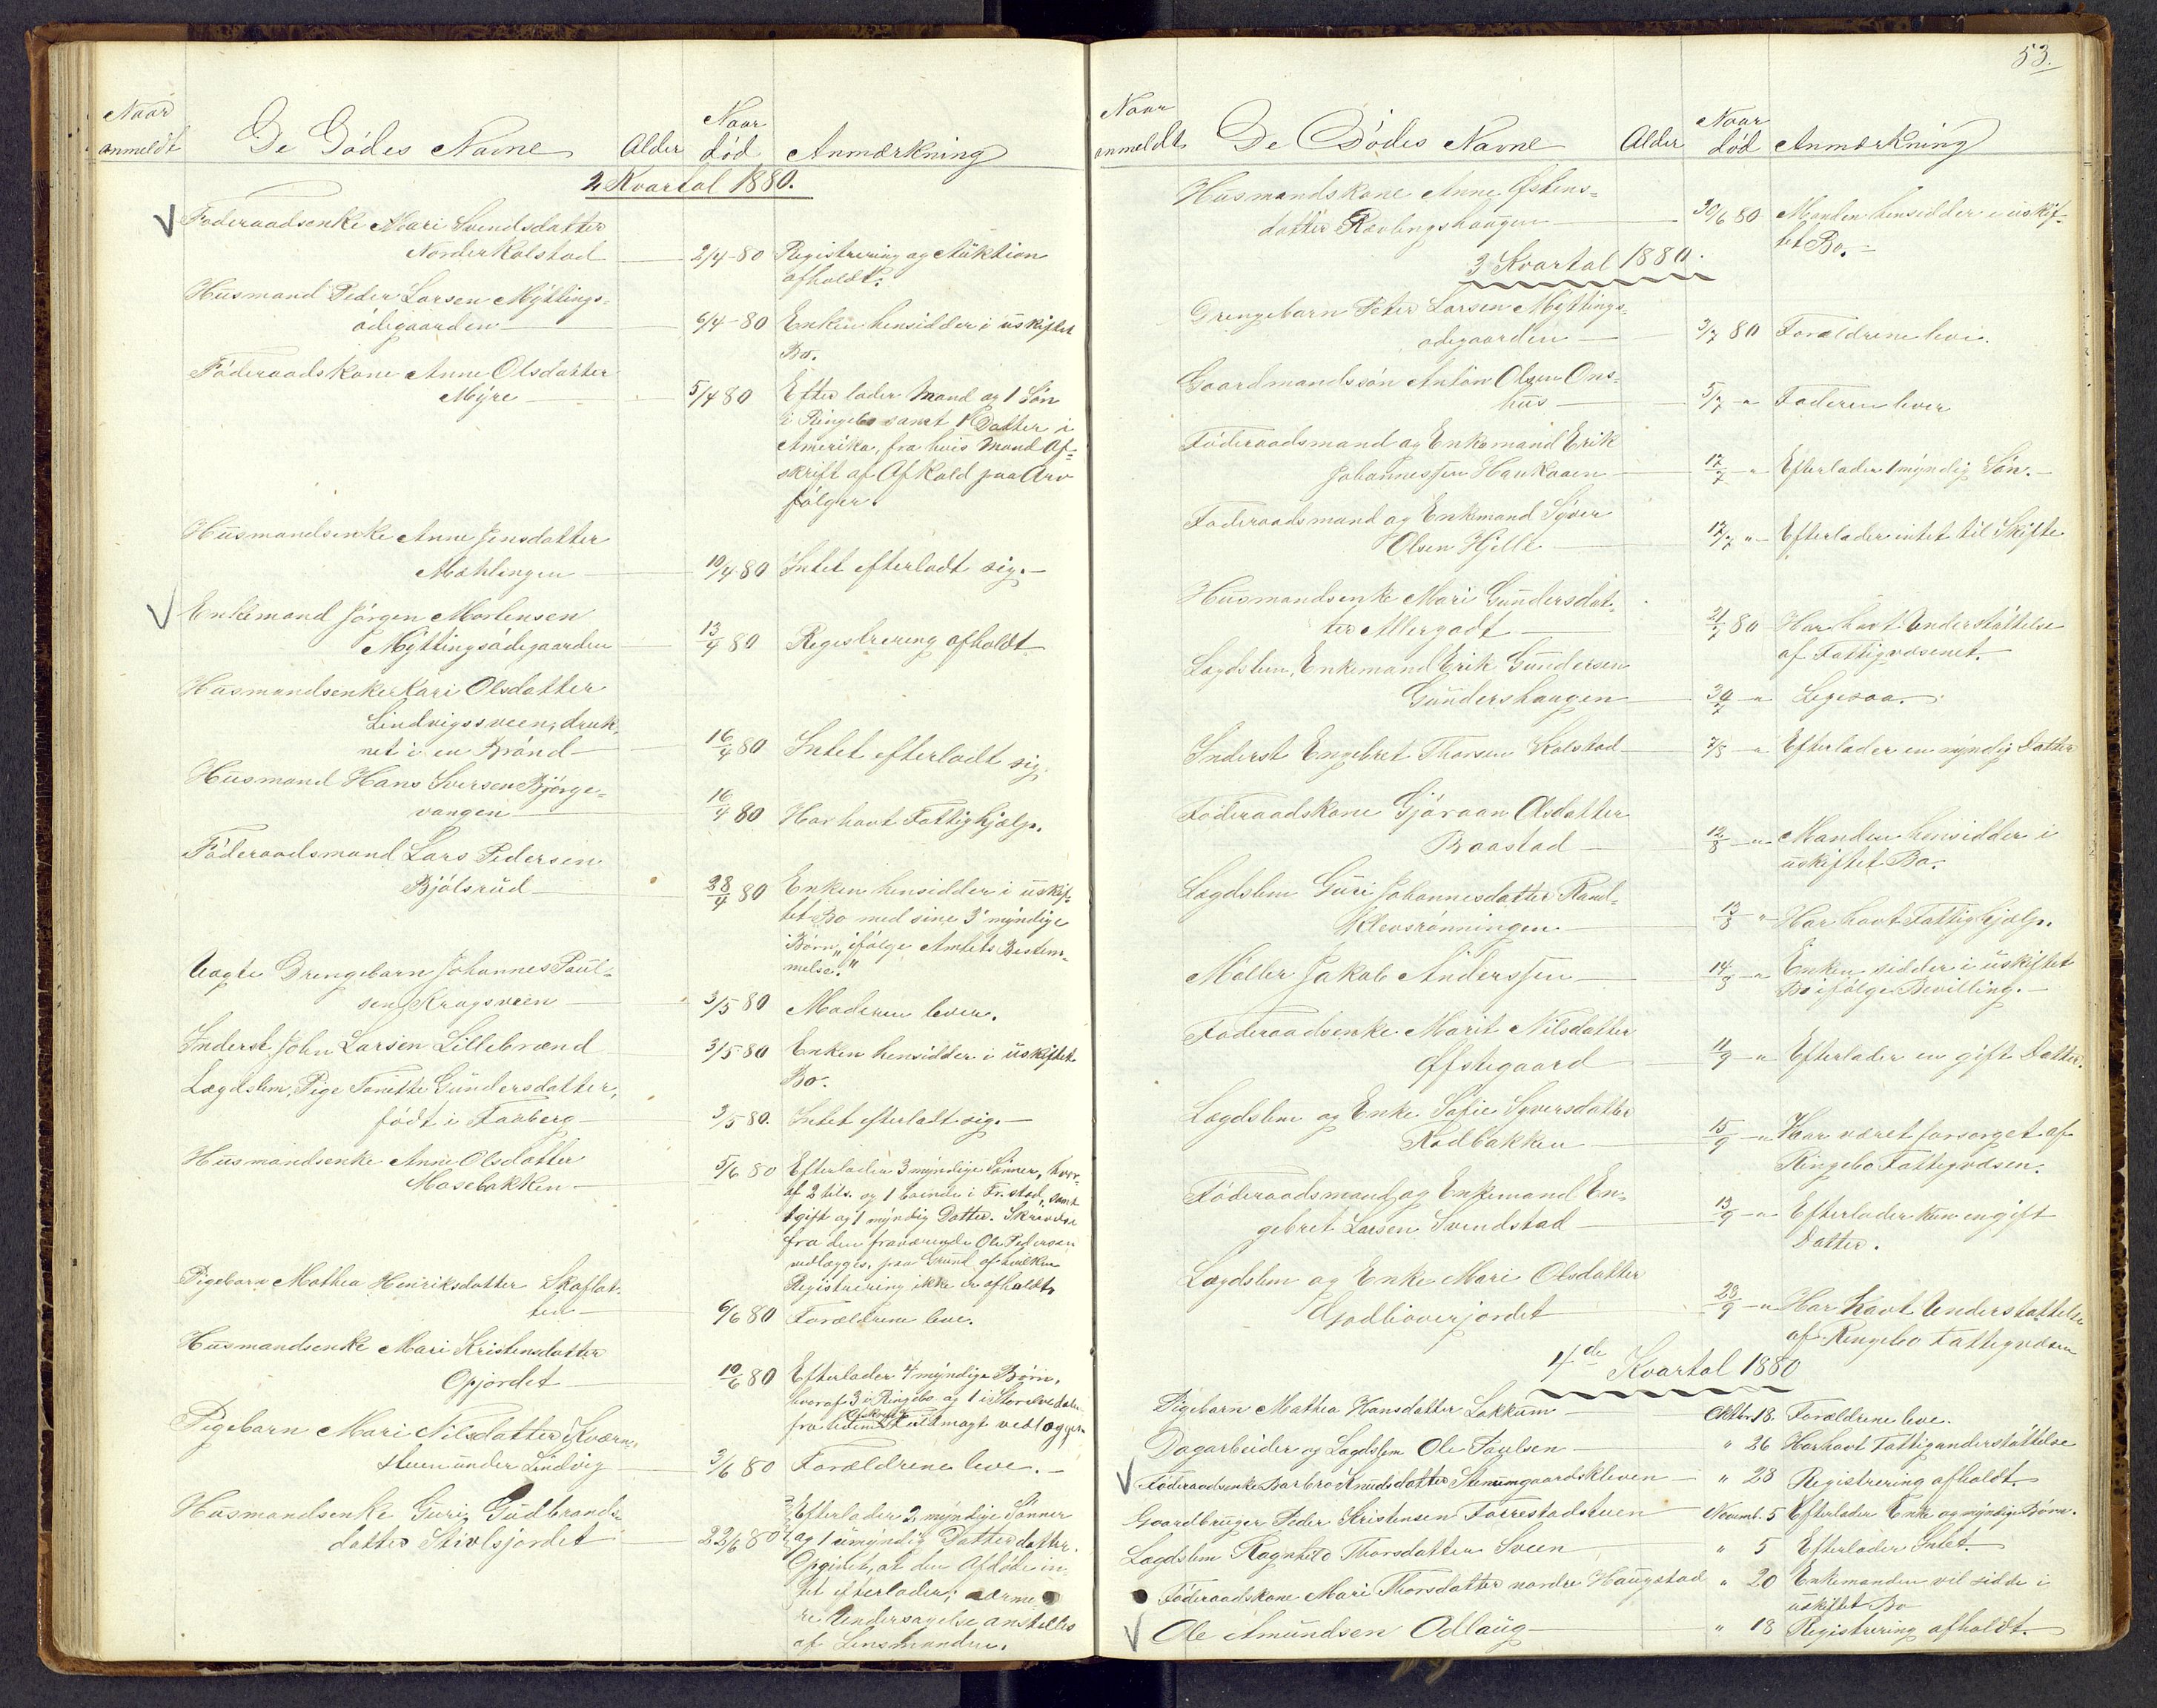 Naar
anmeldt De Dödes Navne Alder Naar död Anmærkning
2 Kvartal 1880.
Foderaadsenke Mari Svendsdatter
Norderkolstad 2/4-80 Registrering og Auktion
afholdt.
Husmand Peder Larsen Myttings-
ödegaarden 6/4-80 Enken hensidder i uskiftet
Bo.
Föderaadskone Anne Olsdatter
Myre 5/4 80 Efterlader Mand og 1 Sön
i Ringebo samt 1 Datter i
Amerika, fra hvis Mand Af-
skrift af Afkald paa Arv
fölger.
Husmandsenke Anne Jensdatter
Mæhlingen 10/4 80 Intet efterladt sig.
Enkemand Jörgen Mortensen
Myttingsödegaarden 13/4 80 Registrering afholdt
Husmandsenke Kari Olsdatter
Lindvigssveen, druk-
net i en Brönd 16/4 80 Intet efterladt sig.
Husmand Hans Iversen Bjørge-
vangen 16/4 80 Har havt Fattighjælp.
Föderaadsmand Lars Pedersen
Bjölsrud 28/4 80 Enken hensidder i uskif-
tet Bo med sine 3 myndige
Börn, "ifölge Amtets Bestem-
melse."
Uægte Drengebarn Johannes Paul-
sen Kragsveen 3/5 80 Moderen lever.
Inderst John Larsen Lillebrænd 3/5 80 Enken hensidder i uskiftet
Bo.
Lægdslem, Pige Gundersdatter,
født i Faaberg 3/5 80. Intet efterladt sig.
Husmandsenke Anne Olsdatter
Mosebakken 5/6 80 Efterlader 3 myndige Sönner, hvor-
af 2 tils. og 1 boende i Fr.stad, samt
1 gift og 1 myndig Datter. Skrivelse
fra den fraværende Ole Pedersen
vedlægges, paa Grund af hvilken
Registrering ikke er afholdt.
Pigebarn Mathea Henriksdatter Skaflot-
ten 6/6 80 Forældrene leve.
Husmandsenke Mari Kristensdatter
Opjordet 10/6 80 Efterlader 4 myndige Börn,
hvoraf 3 i Ringebo og 1 i Storelvedalen
fra hvem Afskrift af Fuldmagt vedlægges.
Pigebarn Mari Nilsdatter Kværn-
stuen under Lindvig 3/6 80 Forældrene leve.
Husmandsenke Guri Gudbrands-
datter Stivlsjordet 22/6 80 Efterlader 2 myndige Sönner
og 1 umyndig Datterdatter.
Opgivet, at den Afdöde in-
tet efterlader; nærme-
re Undersøgelse anstilles
af Lensmanden.
53.
Naar
anmeldt De Dödes Navne Alder Naar död Anmærkning
Husmandskone Anne Östens-
datter Rævlingshaugen 30/6 80 Manden hensidder i uskif-
tet Bo.
3 Kvartal 1880.
Drengebarn Peter Larsen Myttings-
ödegaarden 3/7 80 Forældrene leve.
Gaardmandssön Anton Olsen Ons-
hus 5/7 - " Faderen lever
Föderaadsmand og Enkemand Erik
Johannessen Haukaaen 12/7 - " Efterlader 1 myndig Sön.
Föderaadsmand og Enkemand Syver
Olsen Hjelle 17/7 " Efterlader intet til Skifte
Husmandsenke Mari Gundersdat-
ter Allergodt 21/7 80 Har havt Understöttelse
af Fattigvæsenet.
Lægdslem, Enkemand Erik Gundersen
Gundershaugen 24/7 - " Ligesaa.
Inderst Engebret Thorsen Kolstad 7/8 - " Efterlader en myndig Datter
Föderaadskone Gjöraan Olsdatter
Baastad 12/8 - " Manden hensidder i
uskiftet Bo.
Lægdslem Guri Johannesdatter Rand-
klevsrönningen 13/8 - " Har havt Fattighjælp.
Möller Jakob Anderssen 14/8 - " Enken sidder i uskiftet
Bo ifölge Bevilling.
Föderaadsenke Marit Nilsdatter
Offstegaard 11/9 - " Efterlader en gift Datter.
Lægdslem og Enke Sofie Syversdatter
Rødbakken 15/9 - " Har været forsørget af
Ringebo Fattigvæsen.
Föderaadsmand og Enkemand En-
gebret Larsen Svendstad 13/9 - " Efterlader kun en gift
Datter.
Lægdslem og Enke Mari Olsdatter
Godlioverjordet 23/9 - " Har havt Understöttelse
af Ringebo Fattigvæsen
4de Kvartal 1880
Pigebarn Mathea Hansdatter Løkkum Oktbr. 18. Forældrene leve.
Dagarbeider og Lægdslem Ole Paulsen " 26 Har havt Fattigunderstöttelse
Föderaadsenke Barbro Knudsdatter Stenumgaardskleven " 28 Registrering afholdt.
Gaardbruger Peder Kristensen Forrestadstuen Novemb. 5 Efterlader Enke og myndige Börn.
Lægdslem Ragnhild Thorsdatter Sveen " 5 Efterlader Intet.
Föderaadskone Mari Thorsdatter nordre Haugstad " 20 Enkemanden vil sidde i
uskiftet Bo
Ole Amundsen Odlaug " 18 Registrering afholdt.